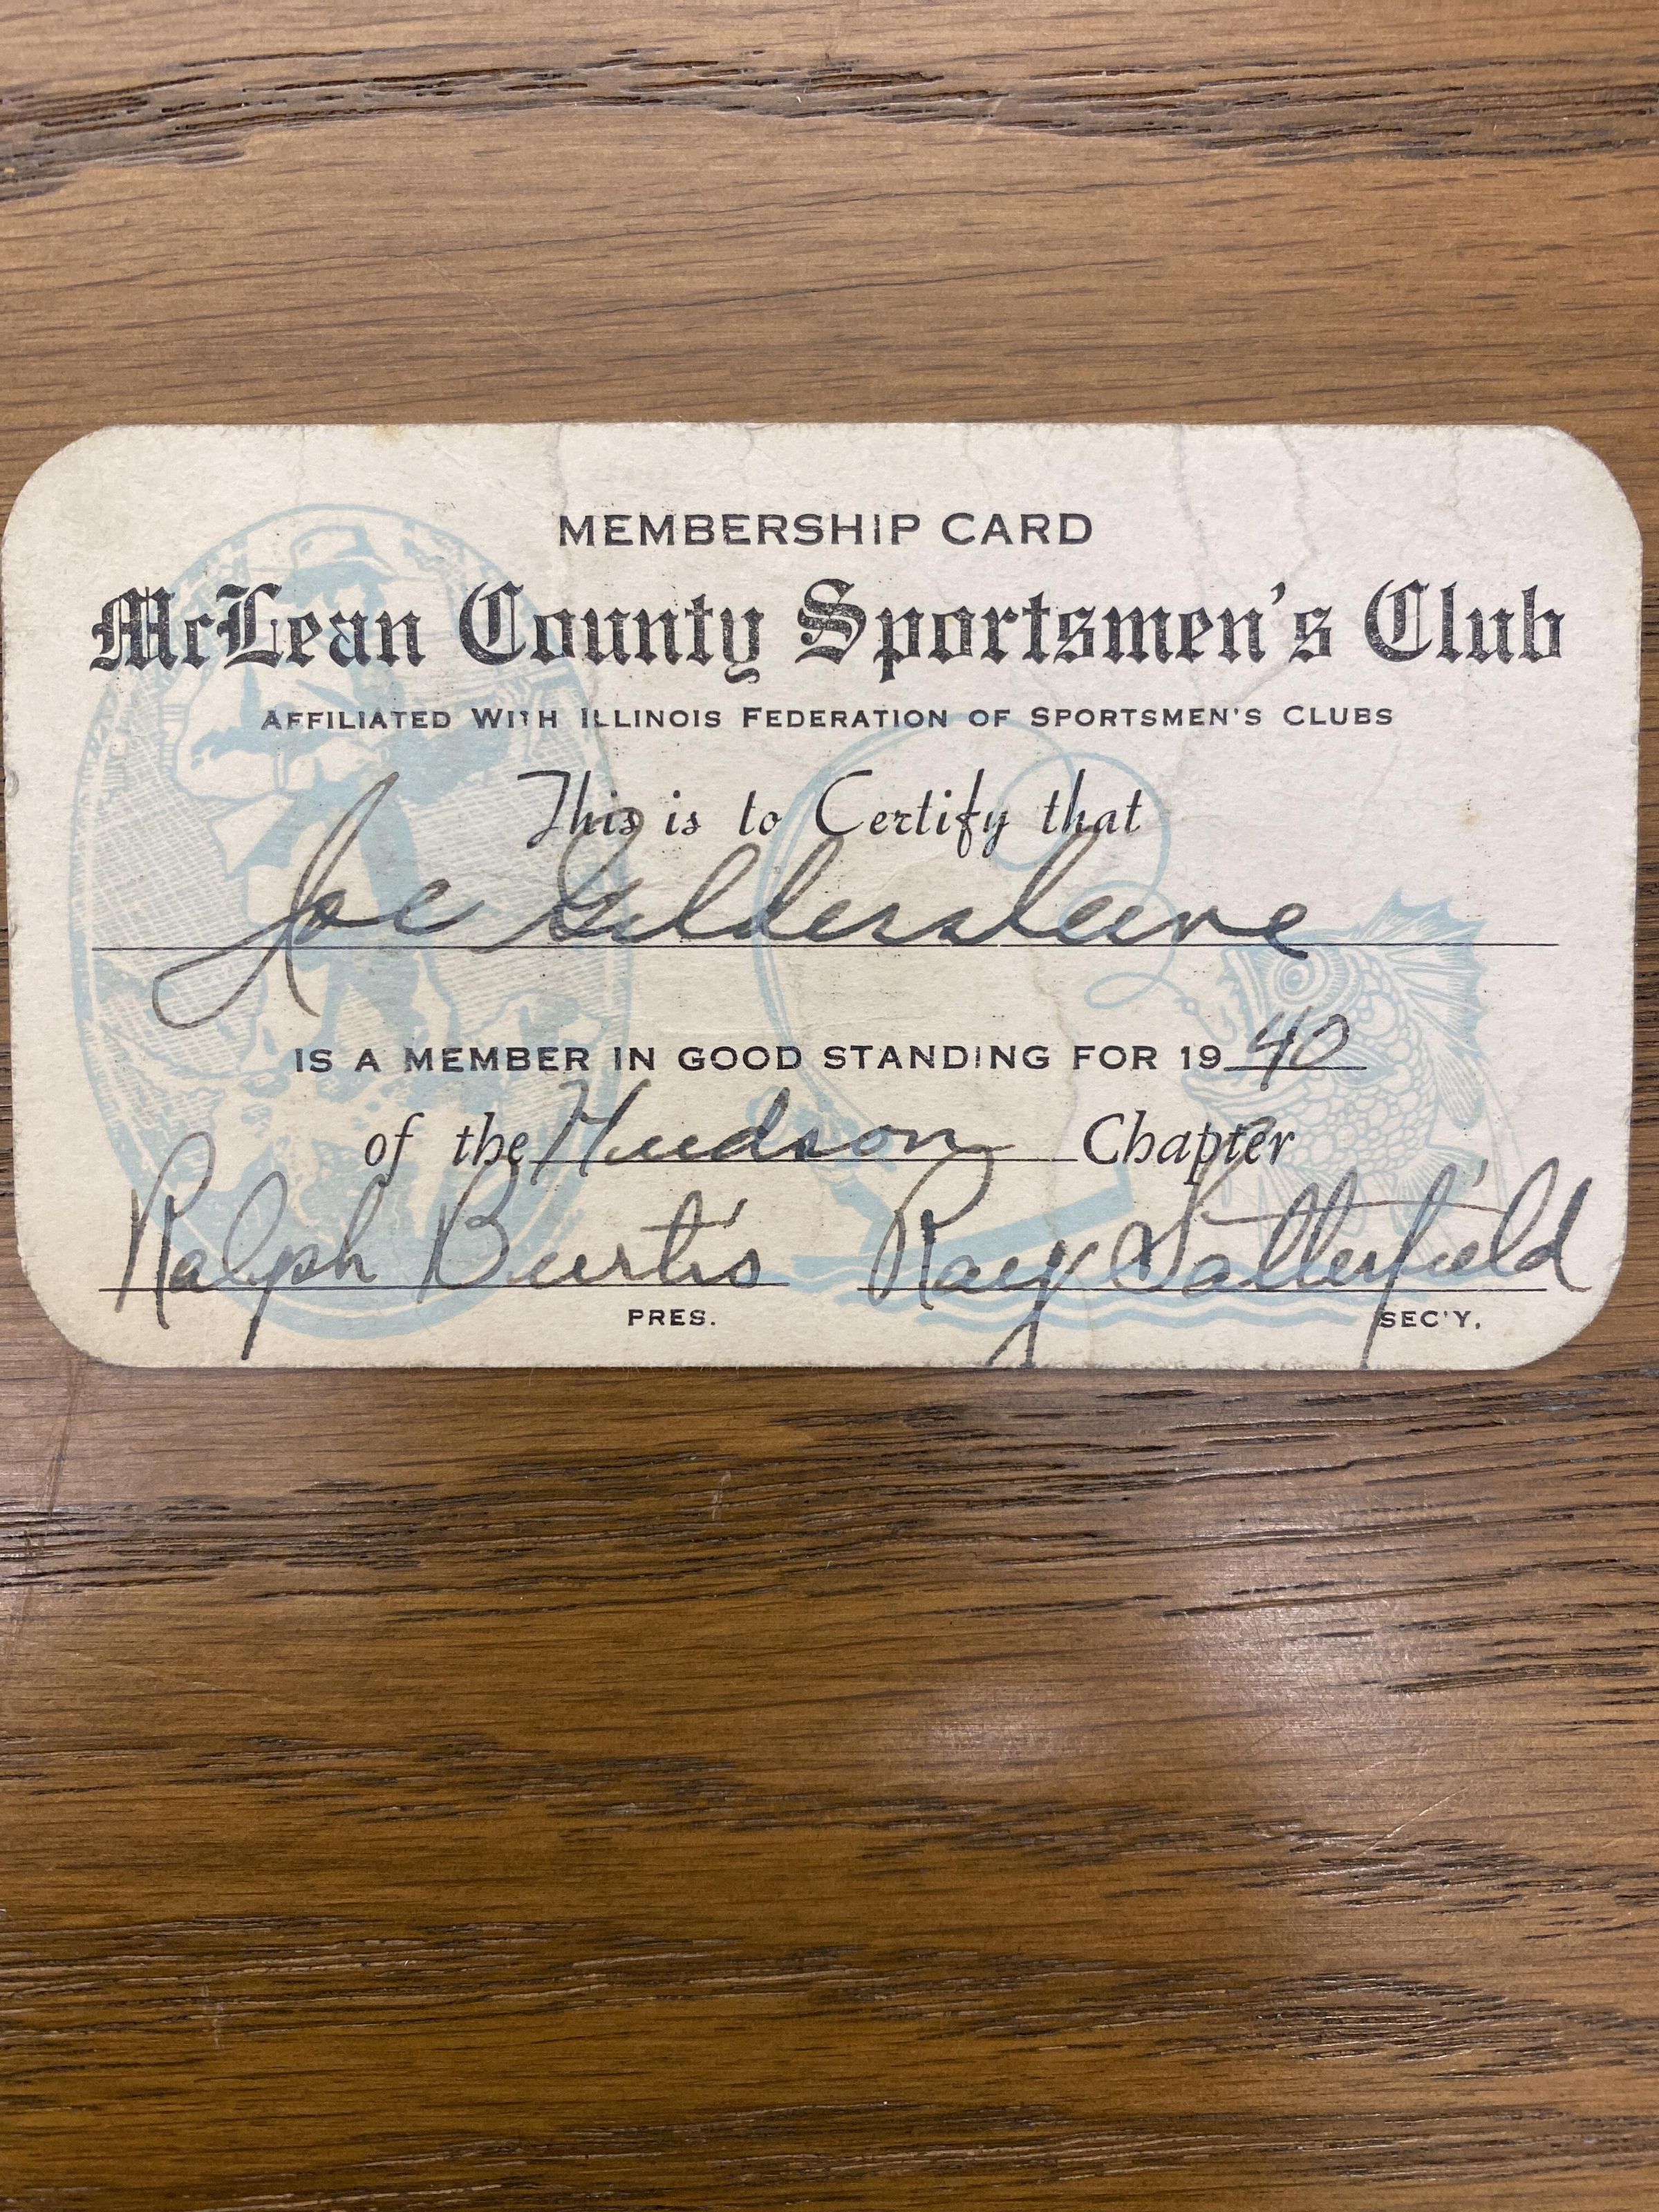 MEMBERSHIP CARD
McLean County Sportsmen's Club
AFFILIATED WITH ILLINOIS FEDERATION OF SPORTSMEN'S CLUBS
This is to Certify that
Joe Gildersleeve
IS A MEMBER IN GOOD STANDING FOR 1940
of the Hudson Chapter
Ralph Burtis Ray Satterfield
PRES. SEC'Y.